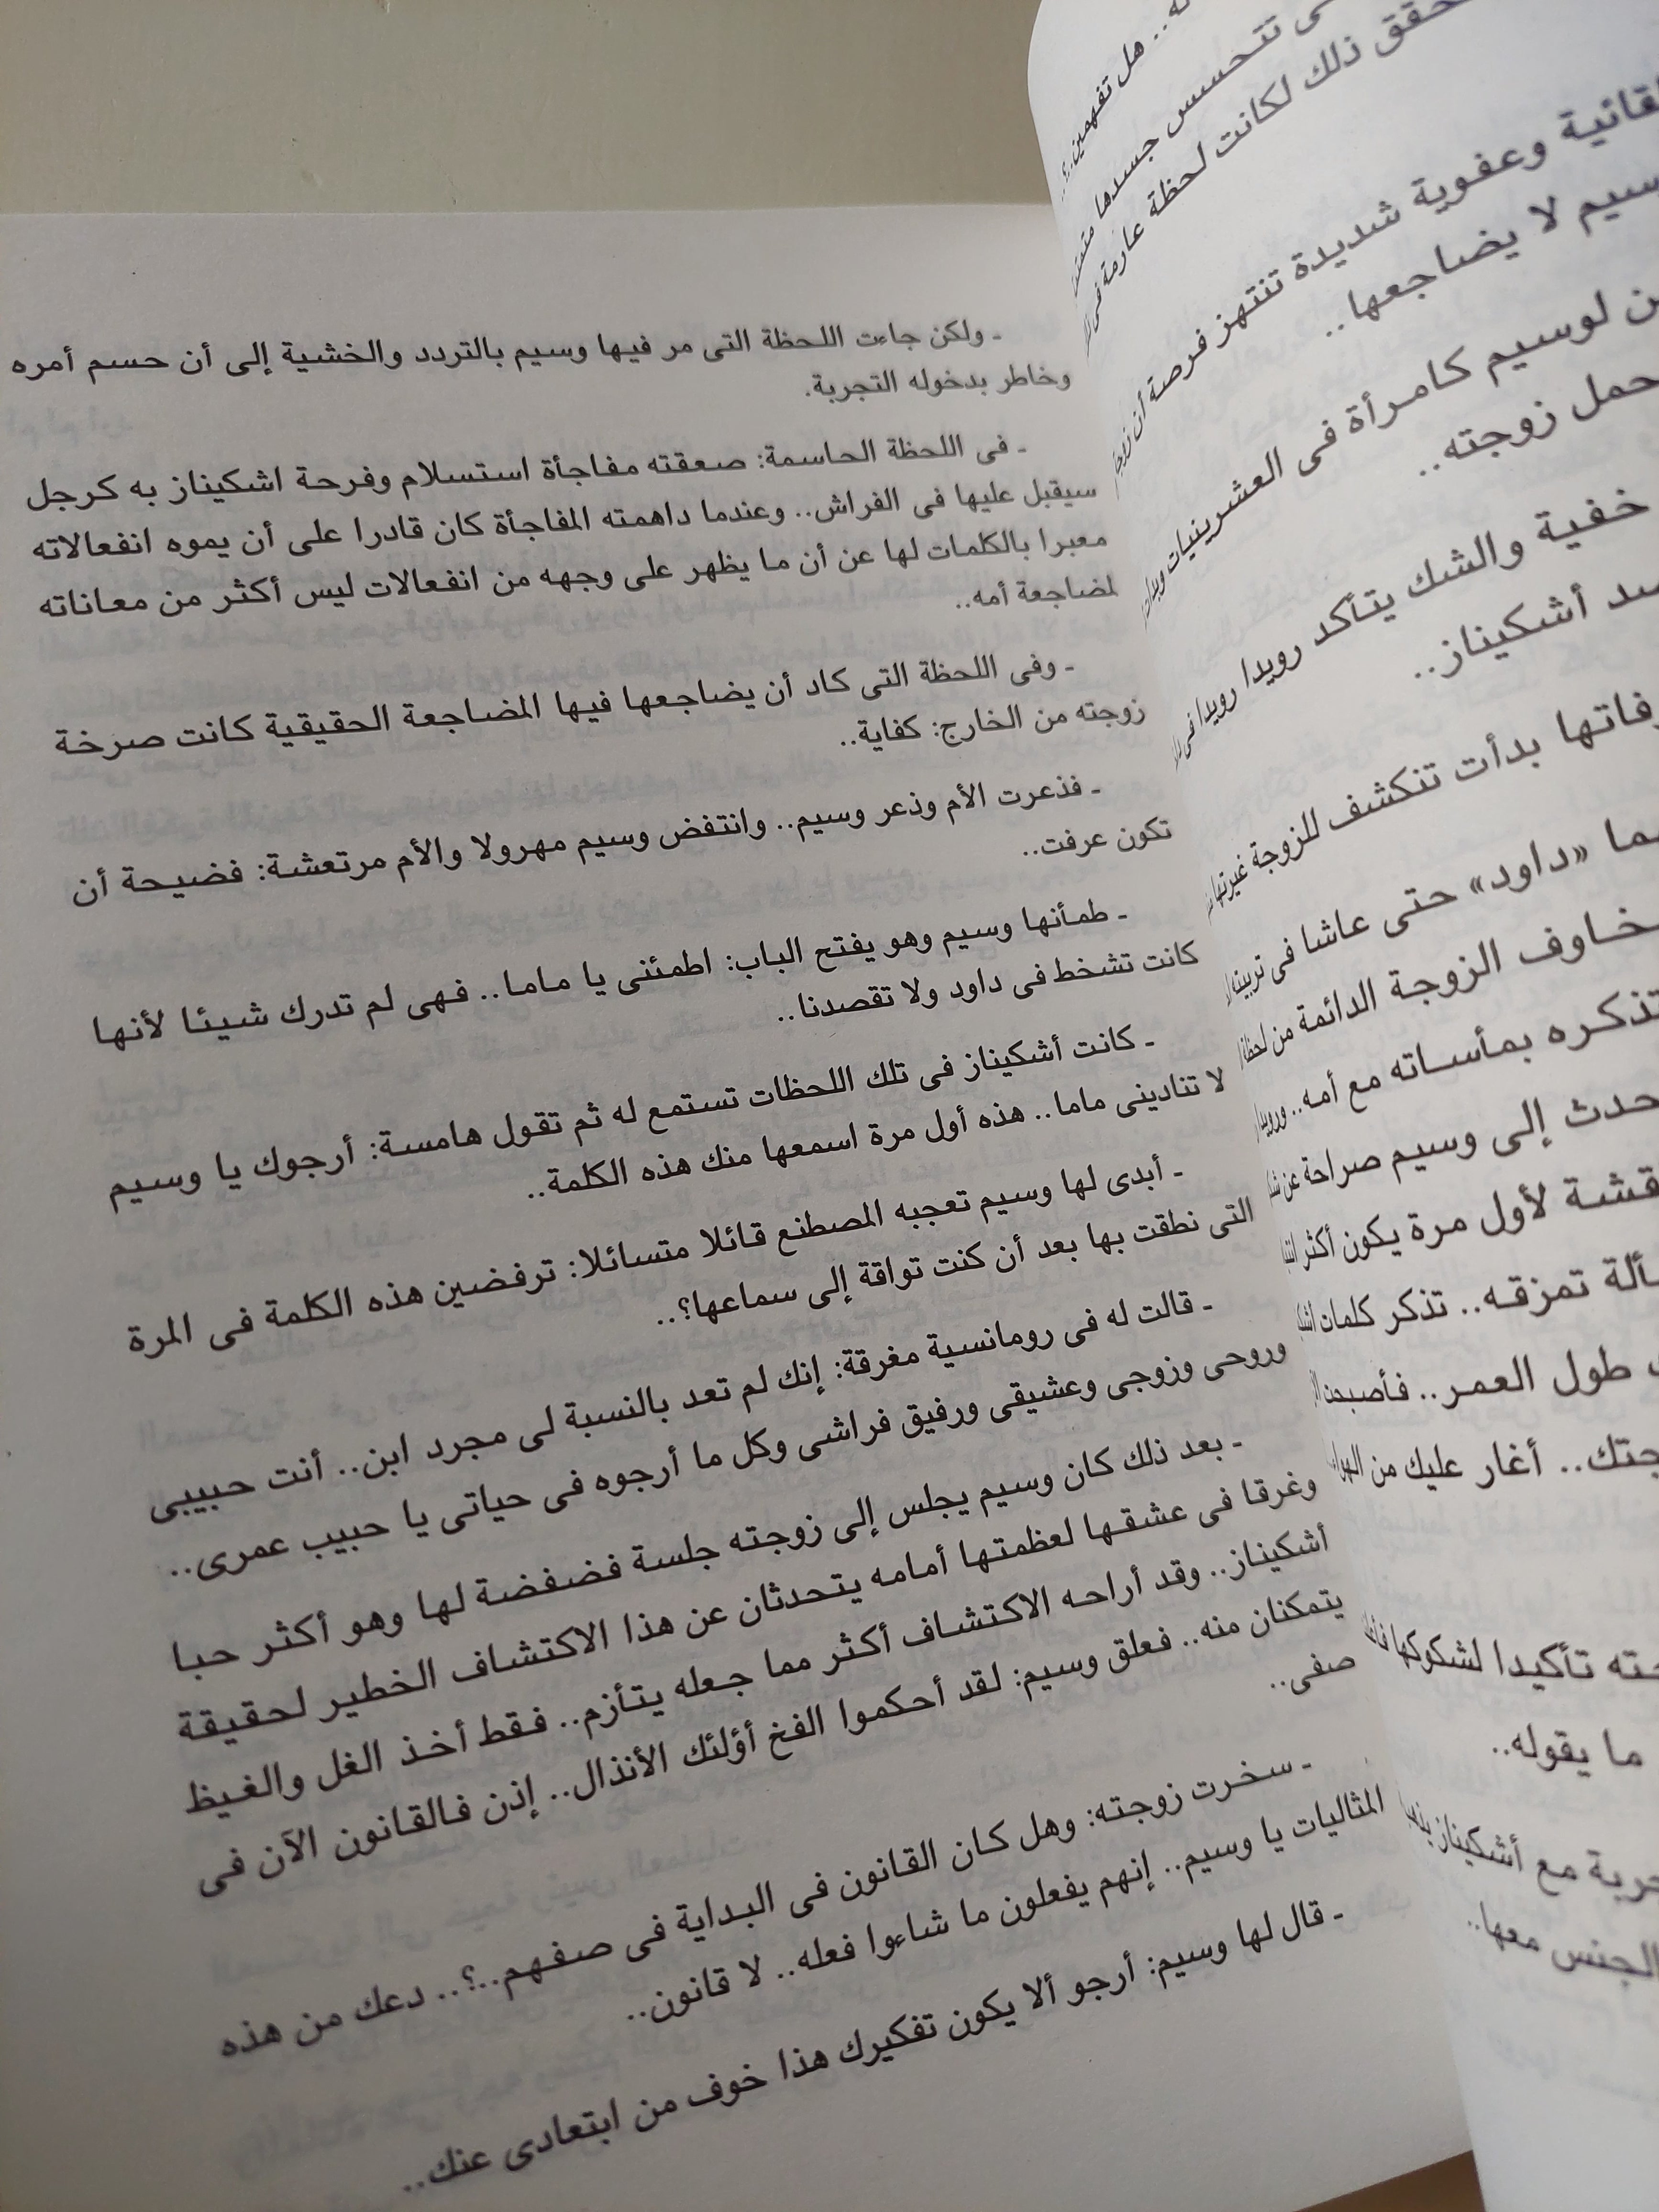 ـ ولكن جاءت اللحظة التى مر فيها وسيم بالتردد والخشية إلى أن حسم أمره
وخاطر بدخوله التجربة.
ـ فى اللحظة الحاسمة: صعقته مفاجأة استسلام وفرحة اشكيناز به كرجل
سيقبل عليها فى الفراش.. وعندما داهمته المفاجأة كان قادرا على أن يموه انفعالاته
معبرا بالكلمات لها عن أن ما يظهر على وجهه من انفعالات ليس أكثر من معاناته
لمضاجعة أمه..
ـ وفى اللحظة التى كاد أن يضاجعها فيها المضاجعة الحقيقية كانت صرخة
زوجته من الخارج: كفاية..
ـ فذعرت الأم وذعر وسيم.. وانتفض وسيم مهرولا والأم مرتعشة: فضيحة أن
تكون عرفت..
ـ طمأنها وسيم وهو يفتح الباب: اطمئنى يا ماما.. فهى لم تدرك شيئا لأنها
كانت تشخط فى داود ولا تقصدنا..
ـ كانت أشكيناز فى تلك اللحظات تستمع له ثم تقول هامسة: أرجوك يا وسيم
لا تنادينى ماما.. هذه أول مرة اسمعها منك هذه الكلمة..
ـ أبدى لها وسيم تعجبه المصطنع قائلا متسائلا: ترفضين هذه الكلمة فى المرة
التى نطقت بها بعد أن كنت تواقة إلى سماعها؟..
ـ قالت له فى رومانسية مغرقة: إنك لم تعد بالنسبة لى مجرد ابن.. أنت حبيبى
وروحى وزوجى وعشيقى ورفيق فراشى وكل ما أرجوه فى حياتى يا حبيب عمرى..
ـ بعد ذلك كان وسيم يجلس إلى زوجته جلسة فضفضة لها وهو أكثر حبا
وغرقا فى عشقها لعظمتها أمامه يتحدثان عن هذا الاكتشاف الخطير لحقيقة
أشكيناز.. وقد أراحه الاكتشاف أكثر مما جعله يتأزم.. فقط أخذ الغل والغيظ
يتمكنان منه.. فعلق وسيم: لقد أحكموا الفخ أؤلئك الأنذال.. إذن فالقانون الآن فى
صفى..
ـ سخرت زوجته: وهل كان القانون فى البداية فى صفهم..؟.. دعك من هذه
المثاليات يا وسيم.. إنهم يفعلون ما شاءوا فعله.. لا قانون..
ـ قال لها وسيم: أرجو ألا يكون تفكيرك هذا خوف من ابتعادى عنك..
هل تفهمين..؟..
تتحسس جسدها
ذلك لكانت لحظة عارمة فى
وعفوية شديدة تنتهز فرصة أن
لا يضاجعها..
لوسيم كامرأة فى العشرينيات
حمل زوجته..
خفية والشك يتأكد رويدا رويدا فى
أشكيناز..
بدأت تنكشف للزوجة غيرتها
«داود» حتى عاشا فى تربيته
الزوجة الدائمة من لحظة
بمأساته مع أمه..
إلى وسيم صراحة عن
لأول مرة يكون أكثر
تمزقه.. تذكر كلمات
طول العمر.. فأصبحت
أغار عليك من الهواء
تأكيدا لشكوكها
ما يقوله..
مع أشكيناز
الجنس معها..